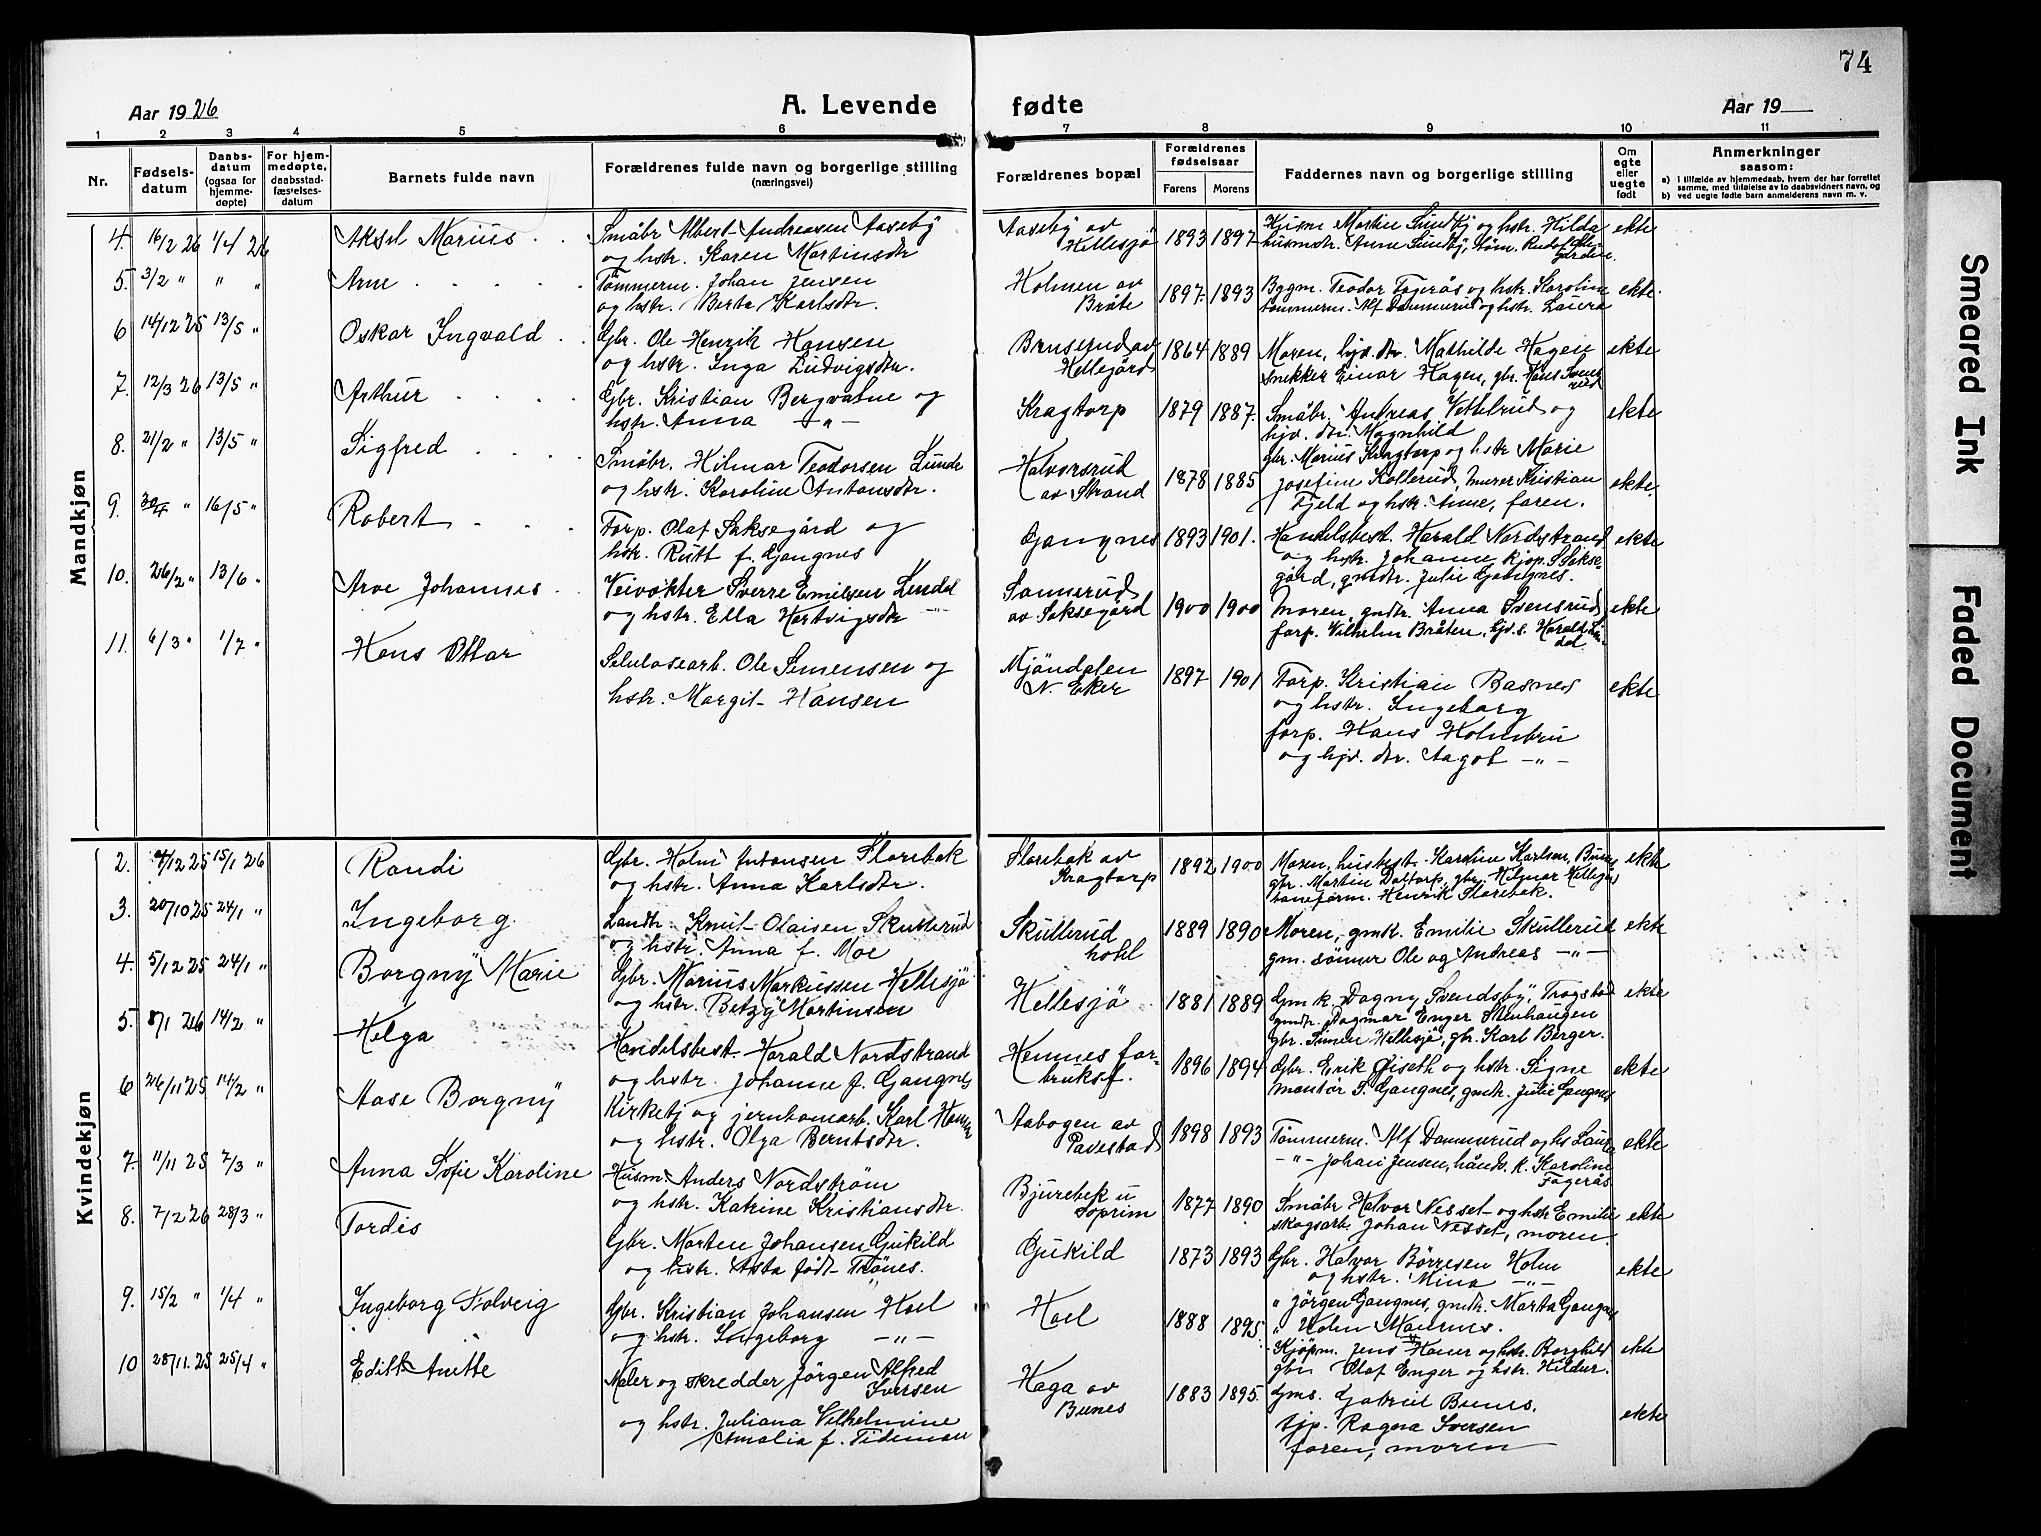 74
Aar 1926
A. Levende fødte
Aar 19
1 2 3 4 5 6 7 8 9 10 11
Nr.
Fødsels-
datum
Daabs-
datum
(ogsaa for
hjemme-
døpte)
For hjem-
medøpte,
daabsstad-
fæstelses-
datum
Barnets fulde navn
Forældrenes fulde navn og borgerlige stilling
(næringsvei)
Forældrenes bopæl
Forældrenes
fødselsaar
Farens Morens
Faddernes navn og borgerlige stilling
Om
egte
eller
uegte
født
Anmerkninger
saasom:
a) I tilfælde av hjemmedaab, hvem der har forrettet
samme, med tilføielse av to daabsvidners navn, og
b) ved uegte fødte barn anmelderens navn m. v.
Mandkjøn
4. 16/2 26 1/4 26 Aksel Marius
Småbr. Albert Andreasen Aaseby
og hstr. Karen Martinsdtr
Aaseby av
Hellesjø
1893 1897
Husm Martin Sundby og hstr. Hilda
husmstr. Anne Sundby, Rudolf
ekte
5. 3/2 " " " Arne
Tømmerm. Johan Jensen
og hstr. Berta Karlsdtr.
Holmen av
Bråte
1897 1893
Bygm. Teodor Fagerås og hstr. Karoline
tømmerm. Alf Dammerud og hstr. Laura
ekte
6 14/12 25 13/5 " Oskar Ingvald
Gbr. Ole Henrik Hansen
og hstr. Inga Ludvigsdtr.
Brusерud av
Hellegård
1864 1889
Moren, hjv. dtr. Mathilde Hagen
snekker Einar Hagen, gbr. Hans Svens
rud
ekte
7. 12/3 26 13/5 " Arthur
Gbr. Kristian Bergvatne og
hstr. Anna -"-
Kragtorp
1879 1887
Småbr. Andreas Vettelrud og
hjv. dtr. Magnhild
gbr. Marius Kragtorp og hstr Marie
ekte
8. 21/2 " 13/5 " Sigfred
Småbr. Hilmar Teodorsen Lunde
og hstr. Karoline Antonsdtr.
Halvorsrud
av Strand
1878 1885
Josefine Kollerud, murer Kristian
Fjeld og hstr. Anne, faren.
ekte
9. " 16/5 " Robert
Forp. Olaf Saksegård og
hstr. Rutt f. Gangnes
Gangnes
1893 1901.
Handelsbest. Harald Nordstrand
og hstr. Johanne, kjøp. S Sakse-
gård, gmdtr. Julie Gangnes.
ekte
10. 26/2 " 13/6 " Arve Johannes
Veivokter Sverre Emilsen Lindal
og hstr. Ella Hartvigsdtr -"-
Sannerud
av Saksegård
1900 1900
Moren, gmdtr. Anna Svensrud
forp. Vilhelm Bråten, hjv.s. Harald Lin-
dal
ekte
11. 6/3 " 1/7 " Hans Ottar
Selulosearb. Ole Simensen og
hstr. Margit Hansen
Mjøndalen
N. Eker
1897 1901
Forp. Kristian Basnes
og hstr. Ingeborg
forp. Hans Holmbru
og hjv. dtr. Aagot -"-
ekte
Kvindekjøn
2. 4/12 25 15/1 26 Randi
Gbr. Holm Antonsen Storebak
og hstr. Anna Karlsdtr.
Storebak av
Kragtorp
1892 1900
Moren, husbest. Karoline Karlsen, Bunes
gbr. Martin Daltorp, gbr. Hilmar Hellegås
baneform. Henrik Storebak.
ekte
3. 20/10 25 24/1 " Ingeborg
Landh. Knut Olaisen Skullerud
og hstr. Anna f. Moe
Skullerud
hotel
1889 1890
Moren, gmk. Emilie Skullerud
gm. sønner Ole og Andreas -"-
ekte
4. 5/12 25 24/1 " Borgny Marie
Gbr. Marius Markussen Hellesjø
og hstr. Betzy Martinsen
Hellesjø
1881 1889
Gm k. Dagny Svendsby, Trøgstad
gmdtr. Dagmar Enger Stenhaugen
gbr. Simen Hellesjø, gbr. Karl Berger.
ekte
5. 8/1 26 14/2 " Helga
Handelsbest. Harald Nordstrand
og hstr. Johanne f. Gangnes
Hemnes for-
bruksf.
1896 1894
Gbr. Erik Giseth og hstr. Signe
montør S. Gangnes, gmdtr. Julie Gangnes
ekte
6 26/11 25 14/2 " Aase Borgny
Kirketj og jernbanearb. Karl Hansen
og hstr. Olga Berntsdtr.
Aabogen av
Pavestad
1898 1893
Tømmerm. Alf Dammerud og hs Laura
-"- Johan Jensen, hånds. k. Karoline
Fagerås
ekte
7. 11/11 25 7/3 " Anna Sofie Karoline
Husm. Anders Nordstrøm
og hstr. Katrine Kristiansdtr.
Bjurebek u
Soprim
1877 1890
Småbr. Halvor Nesset og hstr Emilie
skogsarb. Johan Nesset, moren.
ekte
8. 7/2 26 28/3 " Tordis
Gbr. Morten Johansen Gukild
og hstr. Asta født Trønes.
Gukild
1873 1893
Gbr. Halvor Børresen Holm
og hstr. Mina -"-
" Jørgen Gangnes, gmdtr. Marta Gangnes
ekte
9. 15/2 " 1/4 " Ingeborg Solveig
Gbr. Kristian Johansen Hoel
og hstr. Ingeborg -"-
Hoel
1888 1895
" Holm
Kjøpm. Jens og hstr. Borghild
gbr. Olaf Enger og hstr. Hildur.
ekte
10 28/11 25 25/4 " Edith Anette
Maler og skredder Jørgen Alfred
Iversen
og hstr. Juliana Vilhelmine
Amalia f. Tideman
Haga av
Bunes
1883 1895.
Gms. Gabriel Bunes.
tjp. Ragna Iversen
faren, moren
ekte
Smeared Ink
Faded Document